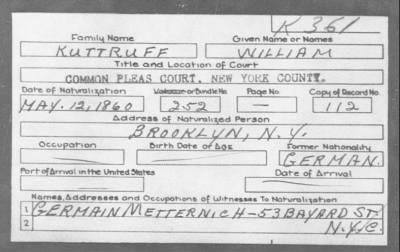 K 361
Family Name Given Name or Names
KUTTRUFF WILLIAM
Title and Location of Court
COMMON PLEAS COURT. NEW YORK COUNTY.
Date of Naturalization Volume or Bundle No Page No Copy of Record No
MAY. 12, 1860 252 — 112
Address of Naturalized Person
BROOKLYN, N.Y.
Occupation Birth Date or Age Former Nationality
GERMAN.
Port of Arrival in the United States Date of Arrival
Names, Addresses and Occupations of Witnesses To Naturalization
1 GERMAIN METTERNICH - 53 BAYARD ST.
2 N.Y.C.